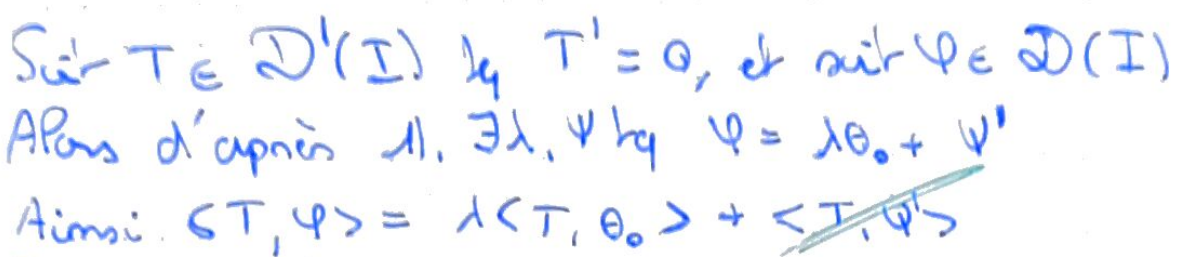 Soit T ∈ D'(I) tq T' = 0, et soit φ ∈ D(I)
Alors d'après 1). ∃λ, ψ tq φ = λθ₀ + ψ'
Ainsi. <T, φ> = λ<T, θ₀> + <T, ψ'>